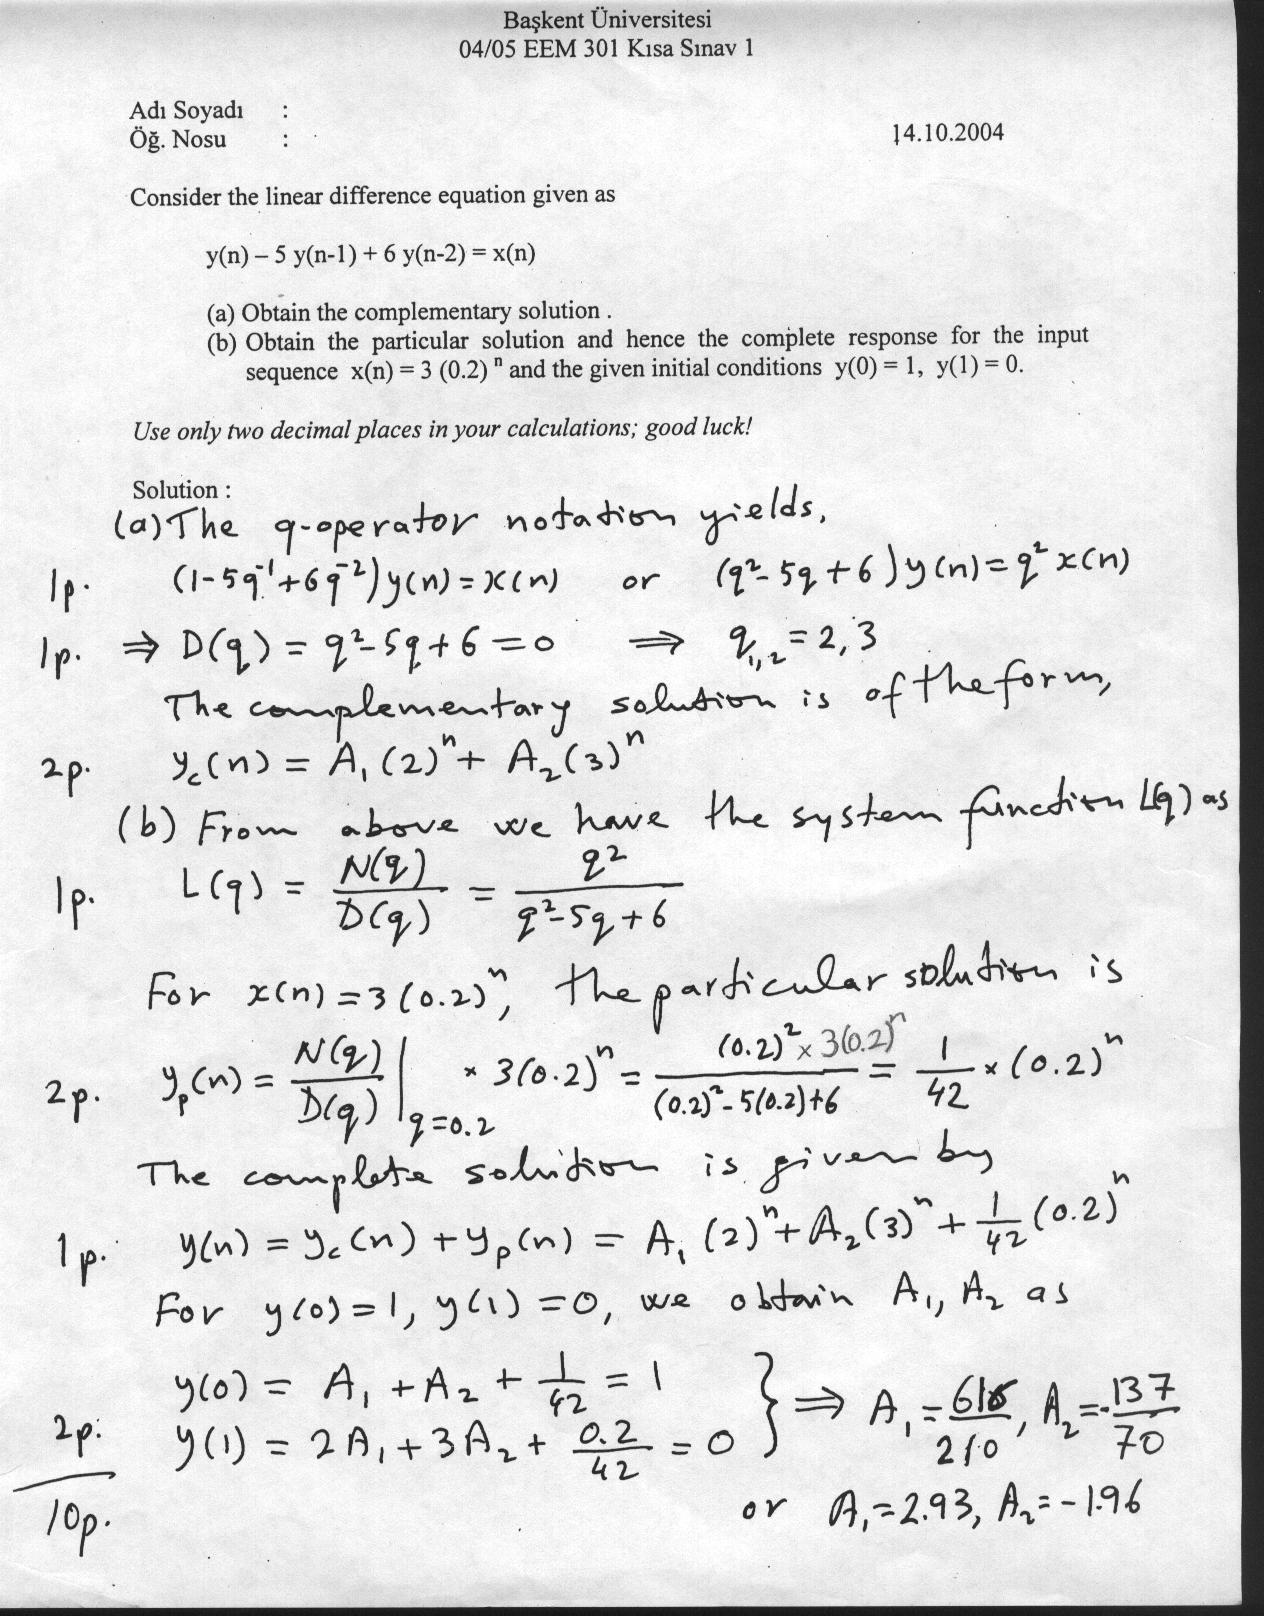 Başkent Üniversitesi
04/05 EEM 301 Kısa Sınav 1
Adı Soyadı :
Öğ. Nosu :
14.10.2004
Consider the linear difference equation given as
y(n) – 5 y(n-1) + 6 y(n-2) = x(n)
(a) Obtain the complementary solution .
(b) Obtain the particular solution and hence the complete response for the input
sequence x(n) = 3 (0.2) ⁿ and the given initial conditions y(0) = 1, y(1) = 0.
Use only two decimal places in your calculations; good luck!
Solution :
(a) The q-operator notation yields,
1p. (1-5q⁻¹+6q⁻²)y(n) = x(n) or (q²-5q+6)y(n)=q²x(n)
1p. ⇒ D(q) = q²-5q+6=0 ⇒ q₁,₂ = 2,3
The complementary solution is of the form,
2p. y_c(n) = A₁(2)ⁿ + A₂(3)ⁿ
(b) From above we have the system function L(q) as
1p. L(q) = N(q)/D(q) = q²/(q²-5q+6)
For x(n)=3(0.2)ⁿ, the particular solution is
2p. y_p(n) = N(q)/D(q) |q=0.2 × 3(0.2)ⁿ = (0.2)² × 3(0.2)ⁿ/((0.2)²-5(0.2)+6) = 1/42 × (0.2)ⁿ
The complete solution is given by
1p. y(n) = y_c(n) + y_p(n) = A₁(2)ⁿ + A₂(3)ⁿ + 1/42 (0.2)ⁿ
For y(0)=1, y(1)=0, we obtain A₁, A₂ as
y(0) = A₁ + A₂ + 1/42 = 1
2p. y(1) = 2A₁ + 3A₂ + 0.2/42 = 0 } ⇒ A₁ = 616/210, A₂ = -137/70
10p. or A₁=2.93, A₂=-1.96